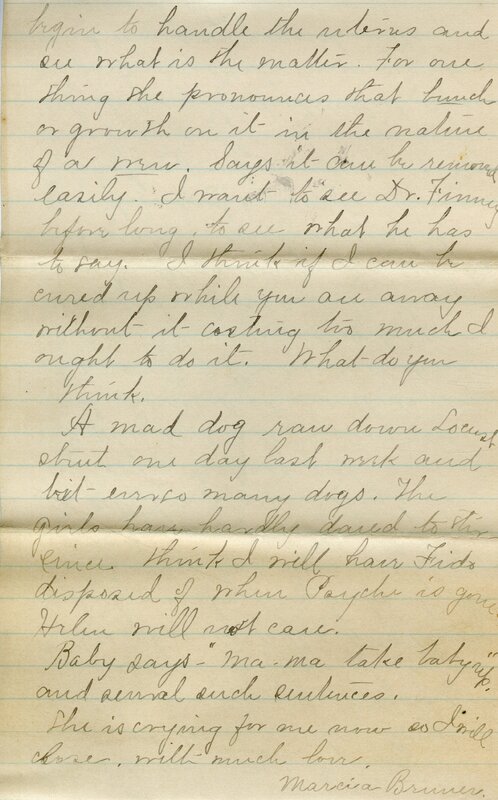 begin to handle the uterus and
see what is the matter. For one
thing she pronounces that bunch
or growth on it in the nature
of a wen. Says it can be removed
easily. I want to see Dr. Finney
before long, to see what he has
to say. I think if I can be
cured up while you are away
without it costing too much I
ought to do it. What do you
think.
A mad dog ran down Locust
street one day last week and
bit ever so many dogs. The
girls have hardly dared to stir
since. Think I will have Fido
disposed of when Psyche is gone
Helen will not care.
Baby says - "Ma-ma take baby up"
and several such sentences.
She is crying for me now so I will
close, with much love.
Marcia Bruner.